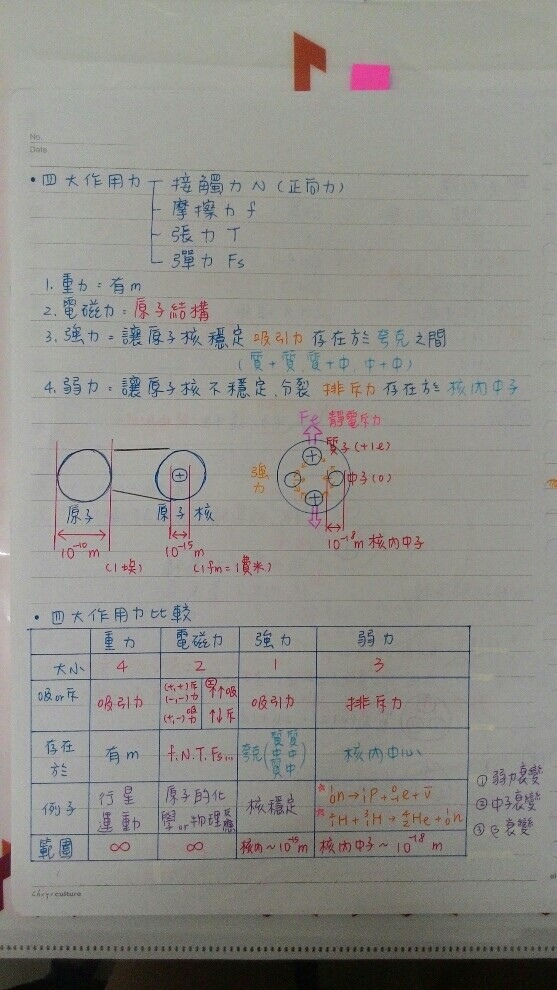 No.
Date
•四大作用力 接觸力 N (正向力)
摩擦力 f
張力 T
彈力 Fs
1. 重力 = 有m
2. 電磁力 = 原子結構
3. 強力 = 讓原子核穩定 吸引力 存在於夸克之間
(質+質、質+中、中+中)
4. 弱力 = 讓原子核不穩定、分裂 排斥力 存在於核內中子
Fe 靜電斥力
質子(+1e)
強力
中子(0)
原子 原子核
10⁻¹⁰ m 10⁻¹⁵ m 10⁻¹⁸ m 核內中子
(1埃) (1fm = 1費米)
• 四大作用力比較
重力 電磁力 強力 弱力
大小 4 2 1 3
吸or斥 吸引力 (+,+)斥 (-,-)力 (+,-)吸力 ↑↑吸 ↑↓斥 吸引力 排斥力
存在於 有m f.N.T.Fs... 夸克(質質 中中 質中) 核內中心
例子 行星運動 原子的化學or物理反應 核穩定 ¹₀n → ¹₁P + ⁰₋₁e + ν̄
²₁H + ³₁H → ⁴₂He + ¹₀n
範圍 ∞ ∞ 核內~10⁻¹⁵m 核內中子~10⁻¹⁸ m
① 弱力衰變
② 中子衰變
③ 衰變
culture